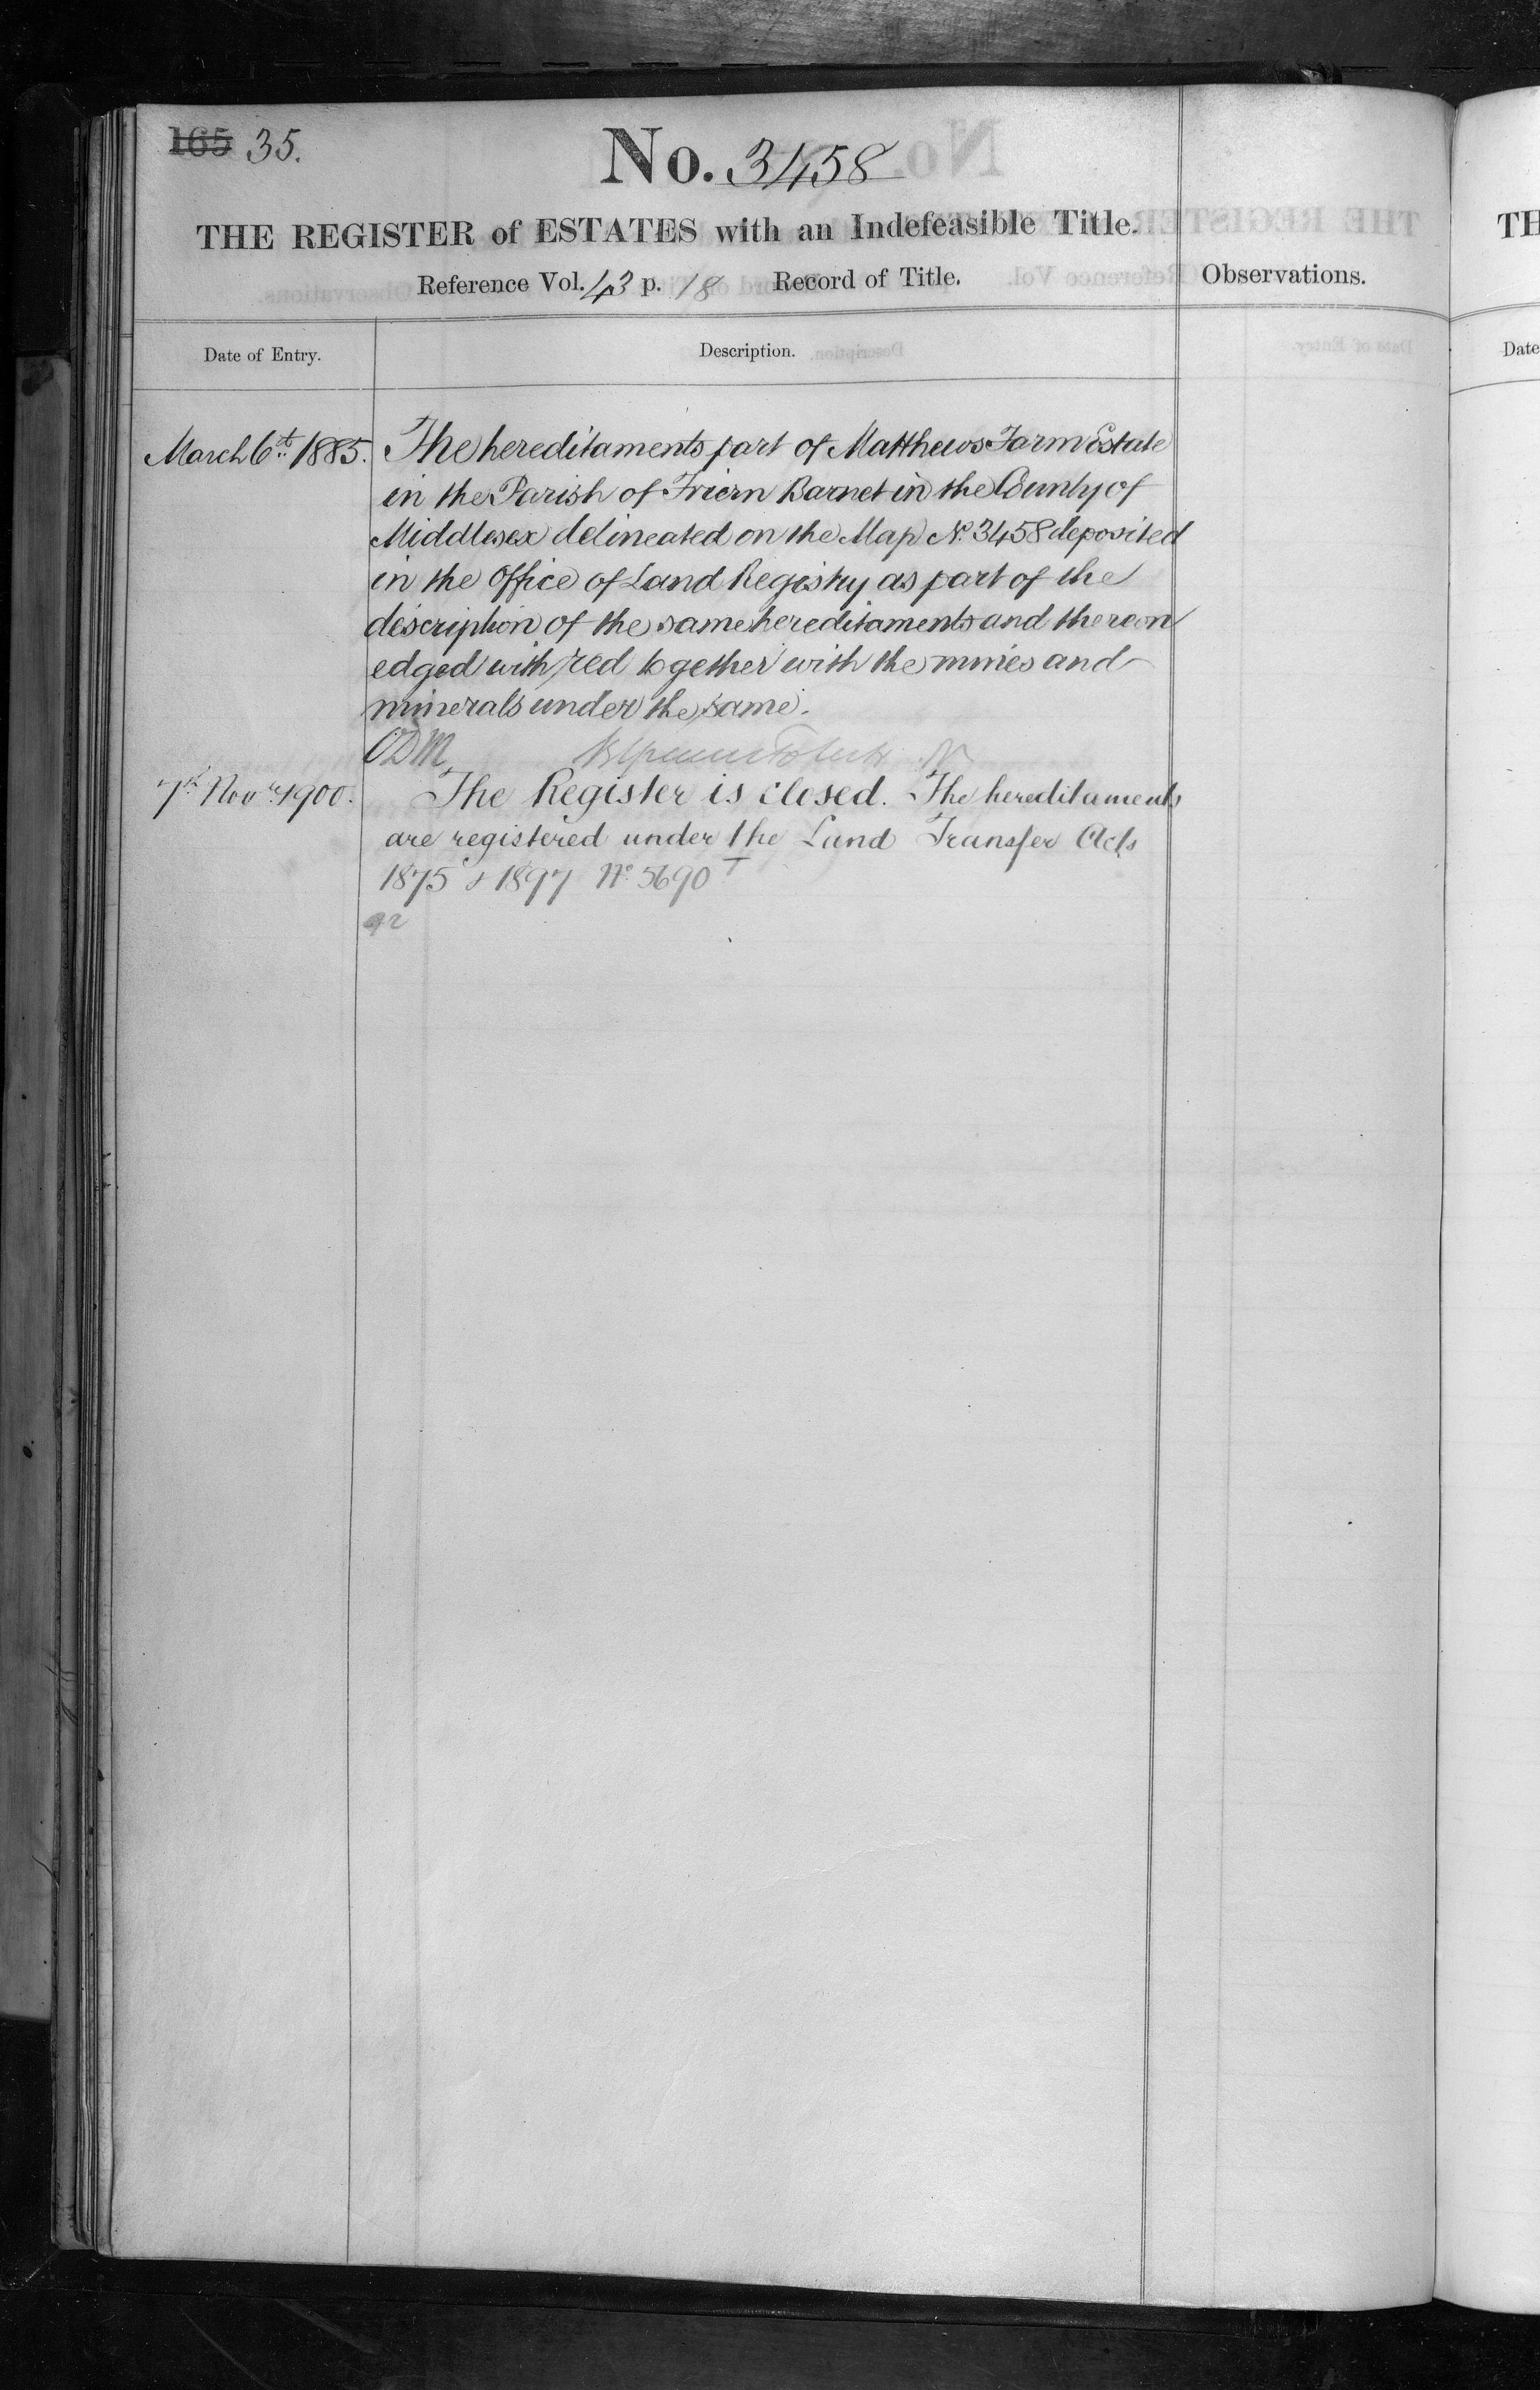 165 35.
No. 3458
THE REGISTER of ESTATES with an Indefeasible Title.
Reference Vol. 43 p. 18 Record of Title.
Observations.
Date of Entry.
Description.
March 6th 1885.
The hereditaments part of Matthews Farm Estate
in the Parish of Friern Barnet in the County of
Middlesex delineated on the Map No. 3458 deposited
in the Office of Land Registry as part of the
description of the same hereditaments and thereon
edged with red together with the mines and
minerals under the same.
7th Novr. 1900.
The Register is closed. The hereditaments
are registered under the Land Transfer Acts
1875 & 1897 No. 5690
TH
Date